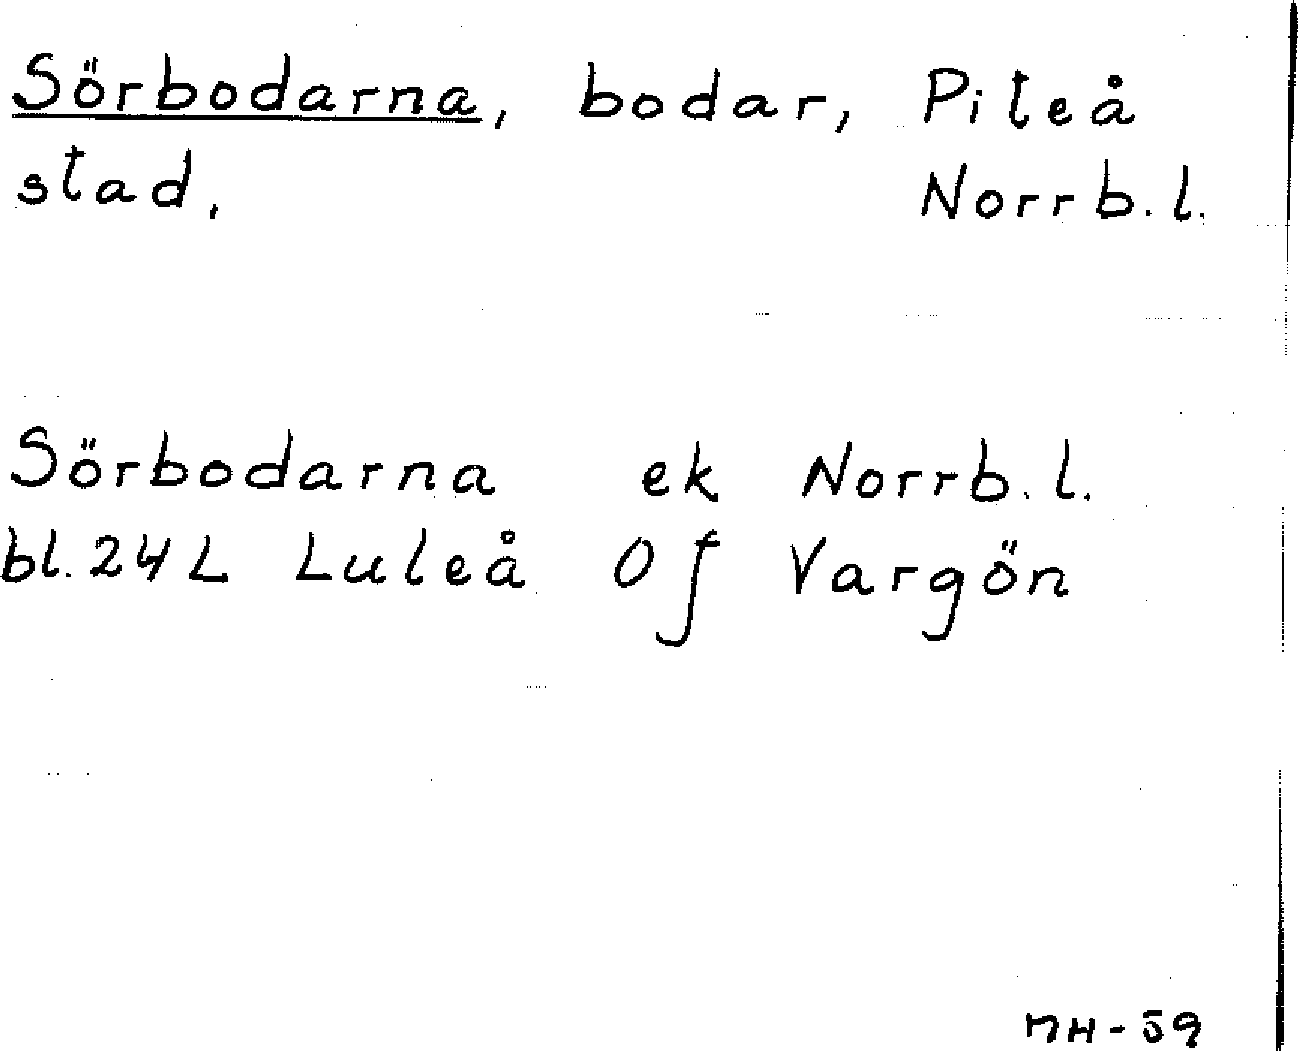 Sörbodarna, bodar, Piteå
stad, Norrb.l.
Sörbodarna ek Norrb.l.
bl.24L Luleå Of Vargön
MH-59